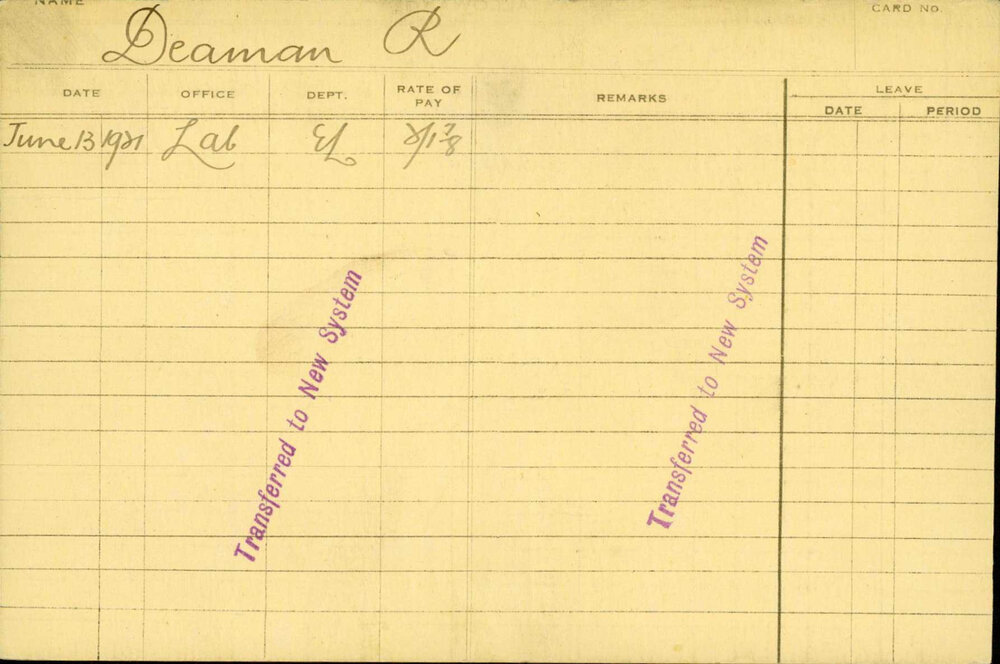 NAME
Deaman R
CARD No.
DATE OFFICE DEPT. RATE OF PAY REMARKS LEAVE
DATE PERIOD
June 13 1921 Lab EL
Transferred to New System
Transferred to New System